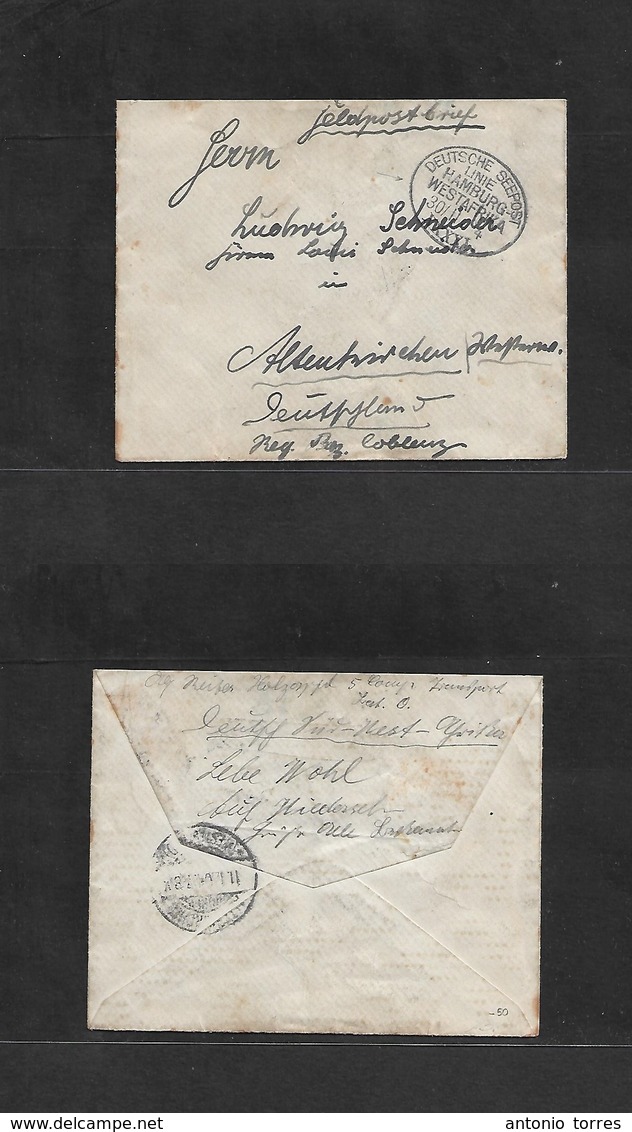 Feldpostbrief
Herrn
DEUTSCHE SEEPOST
LINIE
HAMBURG-
WESTAFRIKA
30/11
4
XXXI
Ludwig Schneider
Firma Louis Schneider
in
Altenkirchen Westerw.
Deutschland
Reg. Bez. Coblenz
Reiter 5 Comp. Transport
Deutsch Süd-West-Afrika
Lebe Wohl
Auf Wiederseh
-50
antonio torres